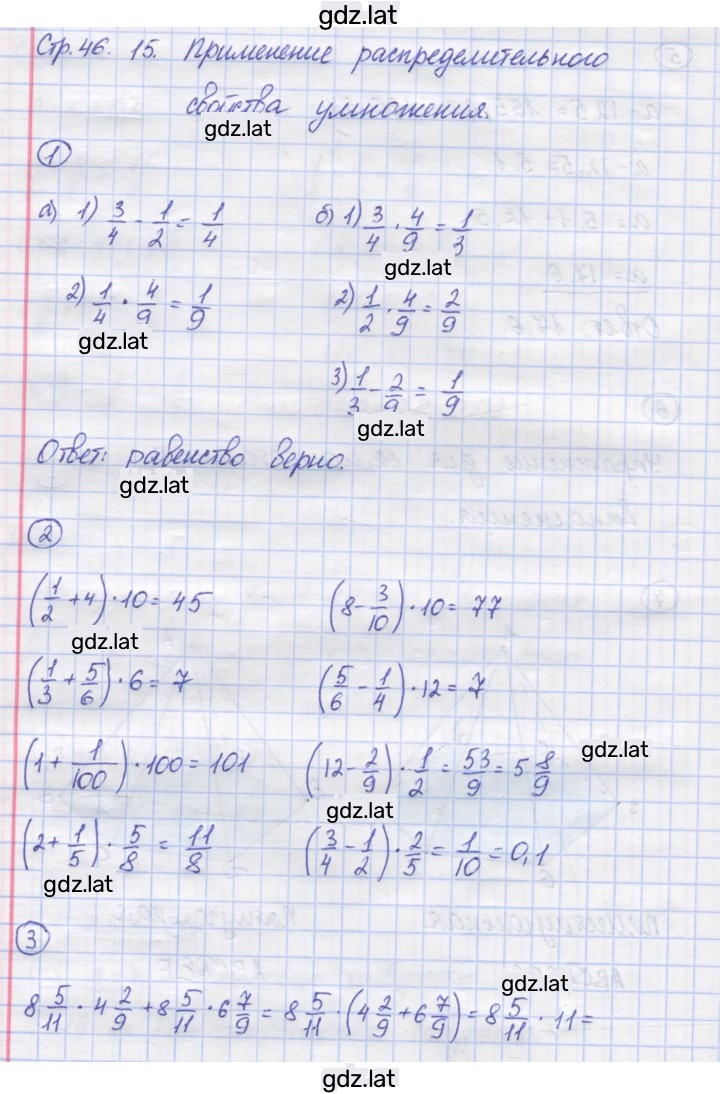 gdz.lat
Стр. 46. 15. Применение распределительного
свойства умножения.
gdz.lat
1
а) 1) 3/4 - 1/2 = 1/4
б) 1) 3/4 · 4/9 = 1/3
gdz.lat
2) 1/4 · 4/9 = 1/9
2) 1/2 · 4/9 = 2/9
gdz.lat
3) 1/3 - 2/9 = 1/9
gdz.lat
Ответ: равенство верно.
gdz.lat
2
(1/2 + 4) · 10 = 45
(8 - 3/10) · 10 = 77
gdz.lat
(1/3 + 5/6) · 6 = 7
(5/6 - 1/4) · 12 = 7
gdz.lat
(1 + 1/100) · 100 = 101
(12 - 2/9) · 1/2 = 53/9 = 5 8/9
gdz.lat
(2 + 1/5) · 5/8 = 11/8
(3/4 - 1/2) · 2/5 = 1/10 = 0,1
gdz.lat
3
gdz.lat
8 5/11 · 4 2/9 + 8 5/11 · 6 7/9 = 8 5/11 · (4 2/9 + 6 7/9) = 8 5/11 · 11 =
gdz.lat